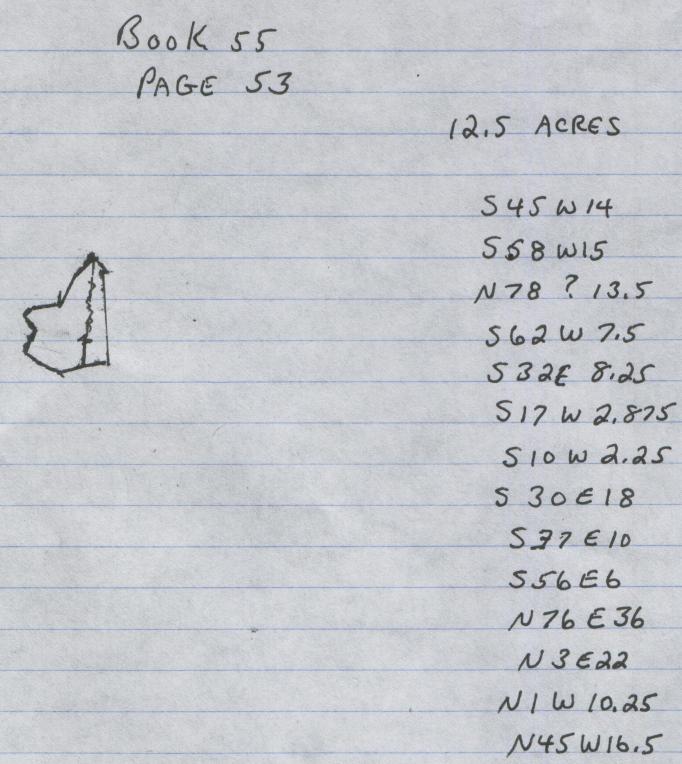 Book 55
PAGE 53
12.5 ACRES
S 45 W 14
S 58 W 15
N 78 ? 13.5
S 62 W 7.5
S 32 E 8.25
S 17 W 2.875
S 10 W 2.25
S 30 E 18
S 37 E 10
S 56 E 6
N 76 E 36
N 3 E 22
N 1 W 10.25
N 45 W 16.5